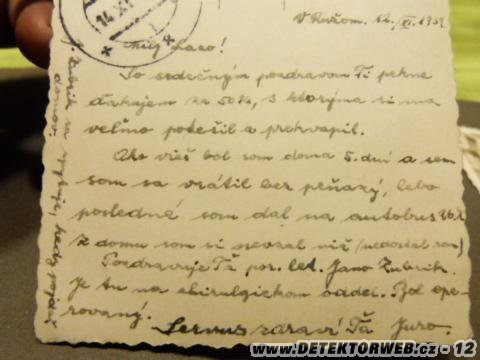 V Ružom. 12. XI. 1939.
14. XI
Milý Laco!
So srdečným pozdravom Ti pekne
ďakujem za 50 Ks, s ktorýma si ma
veľmo potešil a prekvapil.
Ako vieš bol som doma 5. dní a sem
som sa vrátil bez peňazý, lebo
posledné som dal na autobus
Z domu som si nevzal nič (nedostal som)
Pozdravuje Ťa por. let. Jano Zubrik.
Je tu na chirulgickom oddel. Bol ope-
rovaný.
Servus zdraví Ťa Juro.
Zubrik sa
domov.
www.DETEKTORWEB.cz - 12